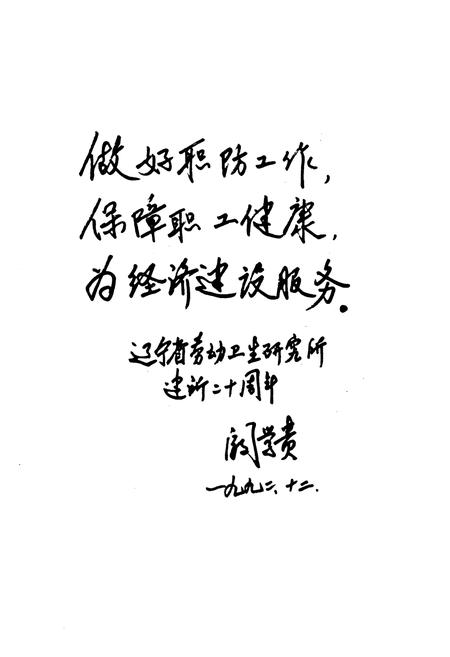 做好职防工作，
保障职工健康，
为经济建设服务。
辽宁省劳动卫生研究所
建所二十周年
学贵
一九九二.十二.